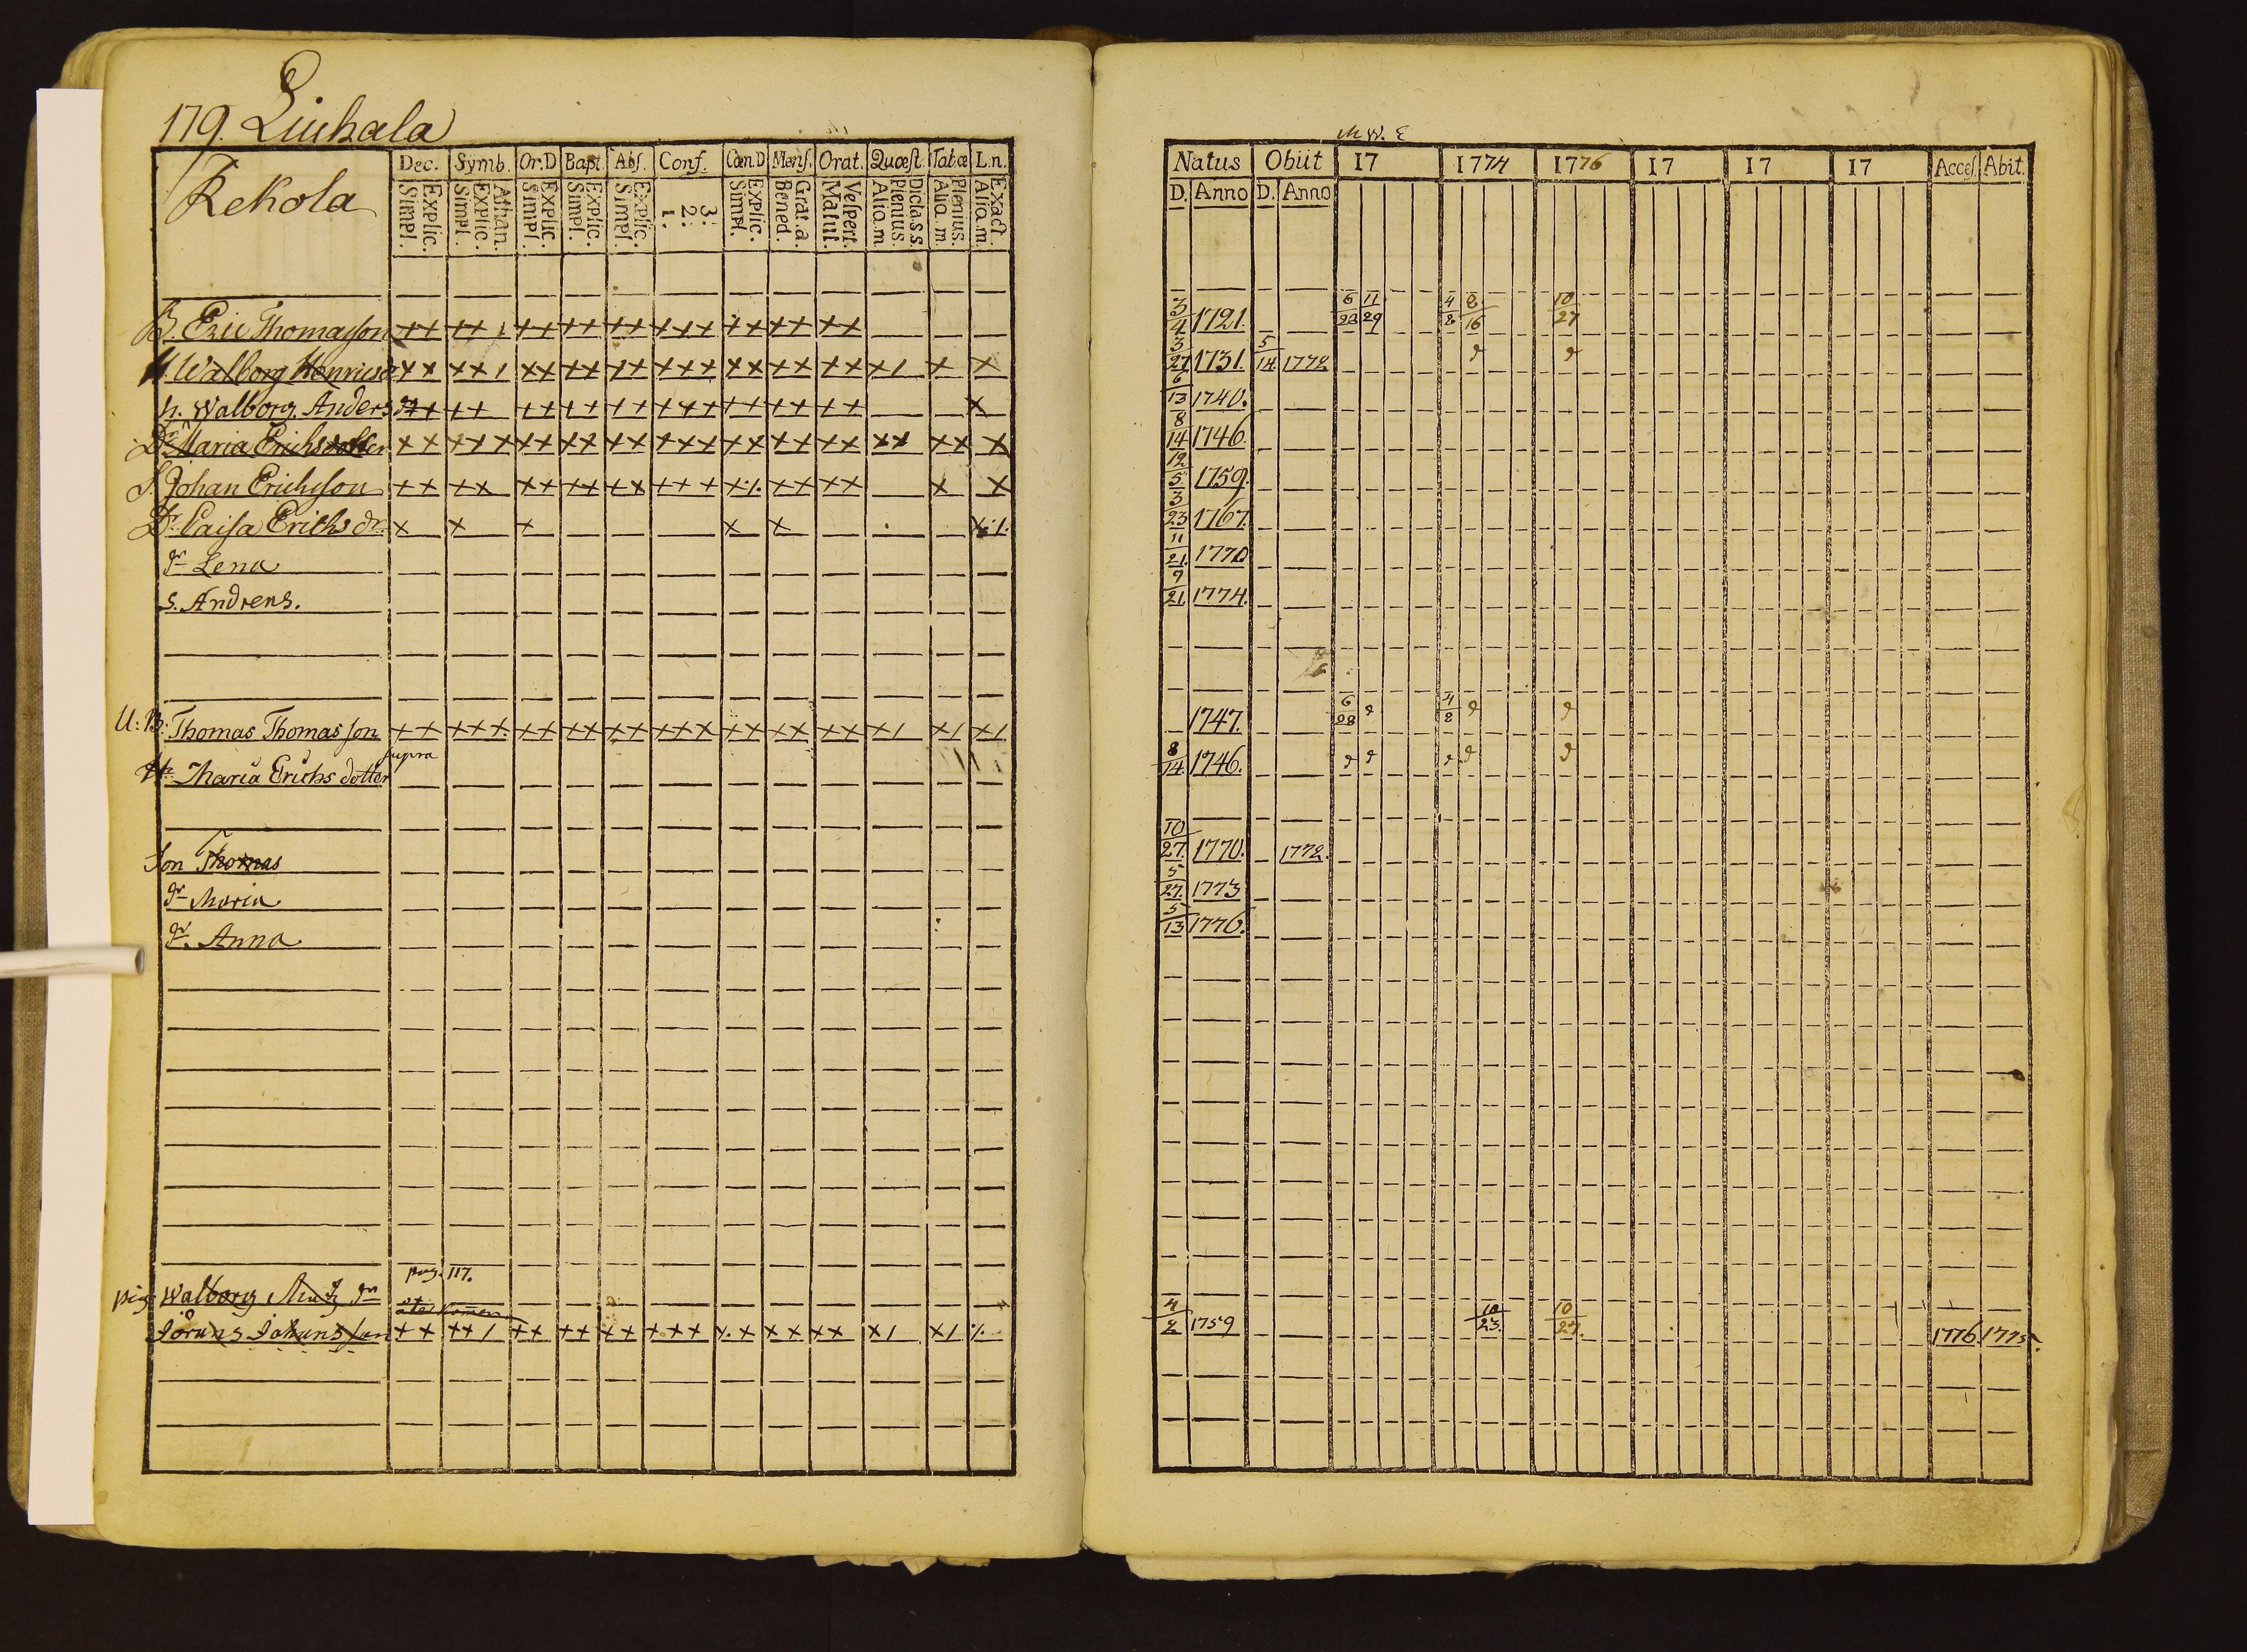 179. Liuhala
Rekola
Dec. Symb. Or.D Bapt. Abs. Conf. Cœn.D Mens. Orat. Quæst. Tabœ L.n.
Simpl. Explic. Simpl. Explic. Athan. Simpl. Explic. Simpl. Explic. Simpl. Explic. 1. 2. 3. Simpl. Explic. Bened. Grat.a. Matut. Vespert. Aliq.m. Plenius. Dicta.s.s. Aliq.m. Plenius. Aliq.m. Exact.
B. Eric Thomasson
H. Walborg Henricsd
h. Walborg Anders dr
Dr Maria Erichsdotter
S. Johan Erichsson
Dr. Caisa Erichs dr.
dr Lena
s. Andreas.
U: B: Thomas Thomasson
H. Maria Erichs dotter supra
Son Thomas
dr Maria
dr. Anna
pag. 117.
pig Walborg Matz dr
återkommen
Jörans Johansson
M W. E
Natus Obiit 17 1774 1776 17 17 17 Acces. Abit.
D. Anno D. Anno
3/4 1721. 6/28 11/29 4/8 8/16 10/27
3/27 1731. 5/14 1772
6/13 1740.
8/14 1746.
12/5 1759.
3/23 1767.
11/21. 1770
9/21. 1774.
1747. 6/28 4/8
8/14 1746.
10/27. 1770. 1772.
5/27. 1773
5/13 1776.
4/2 1759 10/23. 10/27. 1776. 1775.